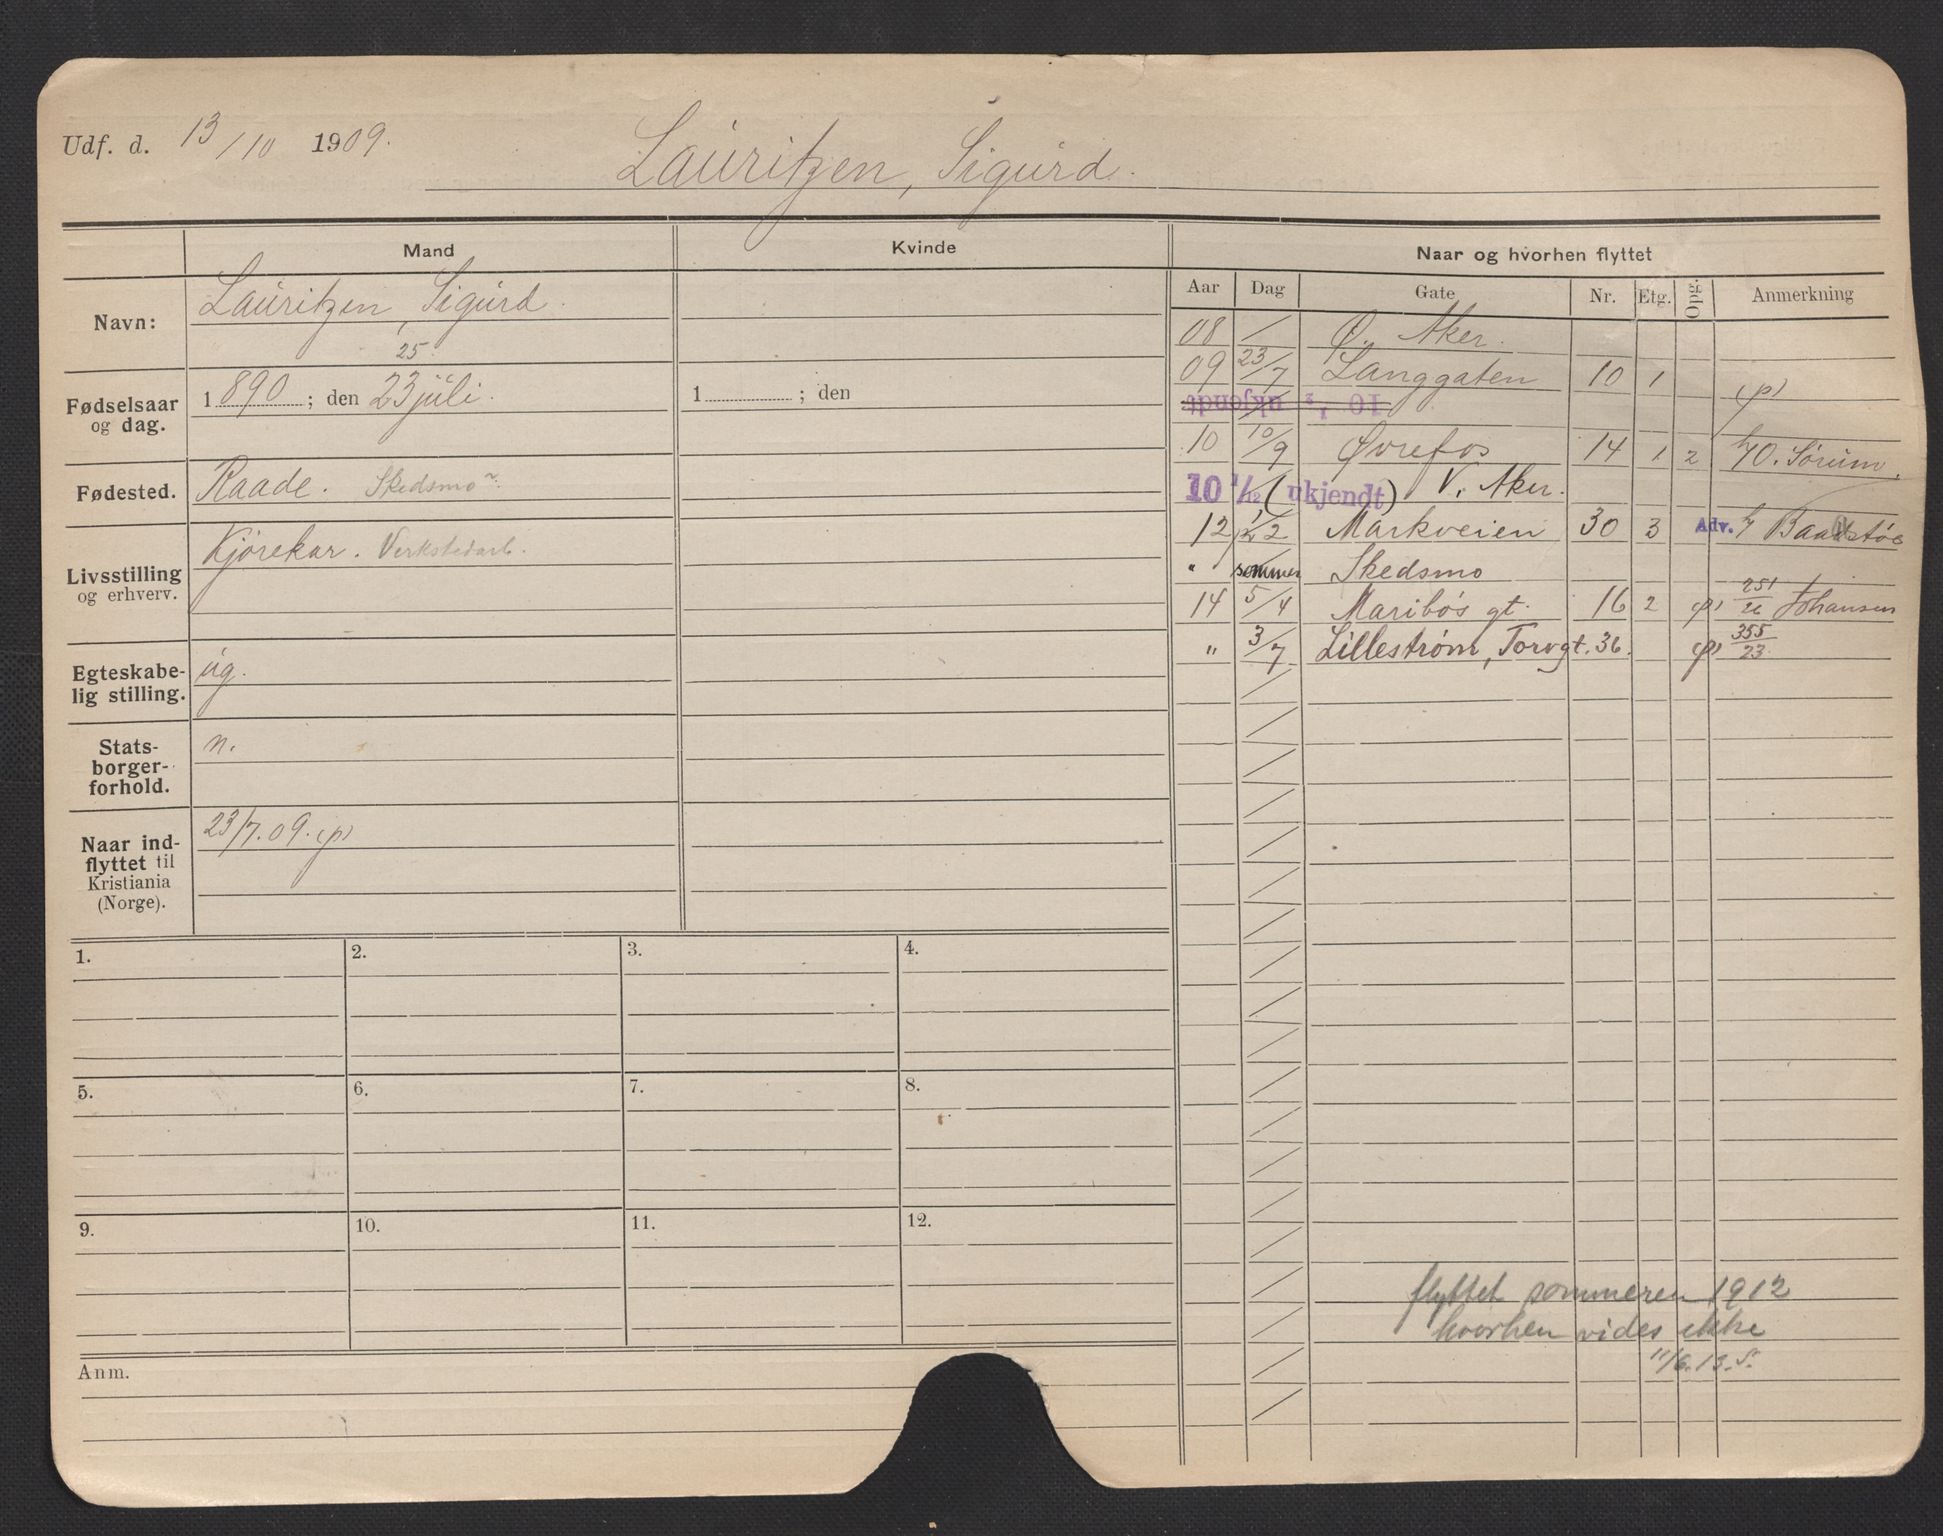 Udf. d. 13/10 1909.
Lauritzen, Sigurd.
Mand
Kvinde
Naar og hvorhen flyttet
Navn:
Lauritzen, Sigurd.
25
Fødselsaar og dag.
1890; den 23 juli.
1 ; den
Fødested.
Raade. Skedsmo
Livsstilling og erhverv.
Kjørekar. Verkstedarb.
Egteskabe-
lig stilling.
ug.
Stats-
borger-
forhold.
n.
Naar ind-
flyttet til
Kristiania
(Norge).
23/7.09. (p)
Aar Dag Gate Nr. Etg. Opg. Anmerkning
08 / Ø. Aker.
09 23/7 Langgaten 10 1 (p)
ukjendt
10 10/9 Øvrefos 14 1 2 h/O. Sørum.
10 1/12 (ukjendt) V. Aker.
12 1/2 2 Markveien 30 3 Adv. h/
" sommer Skedsmo
14 5/4 Maribos gt. 16 2 (p) 251/26 Johansen
" 3/7 Lillestrøm, Torvgt. 36. (p) 355/23
1.
2.
3.
4.
5.
6.
7.
8.
9.
10.
11.
12.
Anm.
flyttet sommeren 1912
hvorhen vides ikke
11/6.13. S.